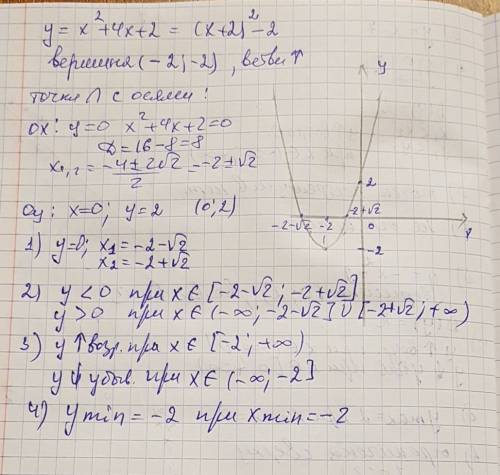 y = x²+4x+2 = (x+2)²-2
вершина (-2; -2), ветви ↑
точки ∩ с осями:
ox: y=0 x²+4x+2=0
D=16-8=8
x₁,₂ = (-4±2√2)/2 = -2±√2
oy: x=0; y=2 (0;2)
1) y=0; x₁ = -2-√2
x₂ = -2+√2
2) y<0 при x∈[-2-√2; -2+√2]
y>0 при x∈(-∞; -2-√2]∪[-2+√2; +∞)
3) y↑возр. при x∈[-2; +∞)
y↓убыв. при x∈(-∞; -2]
4) ymin = -2 при xmin = -2
y
2
-2-√2 -2 -2+√2 0 x
-2